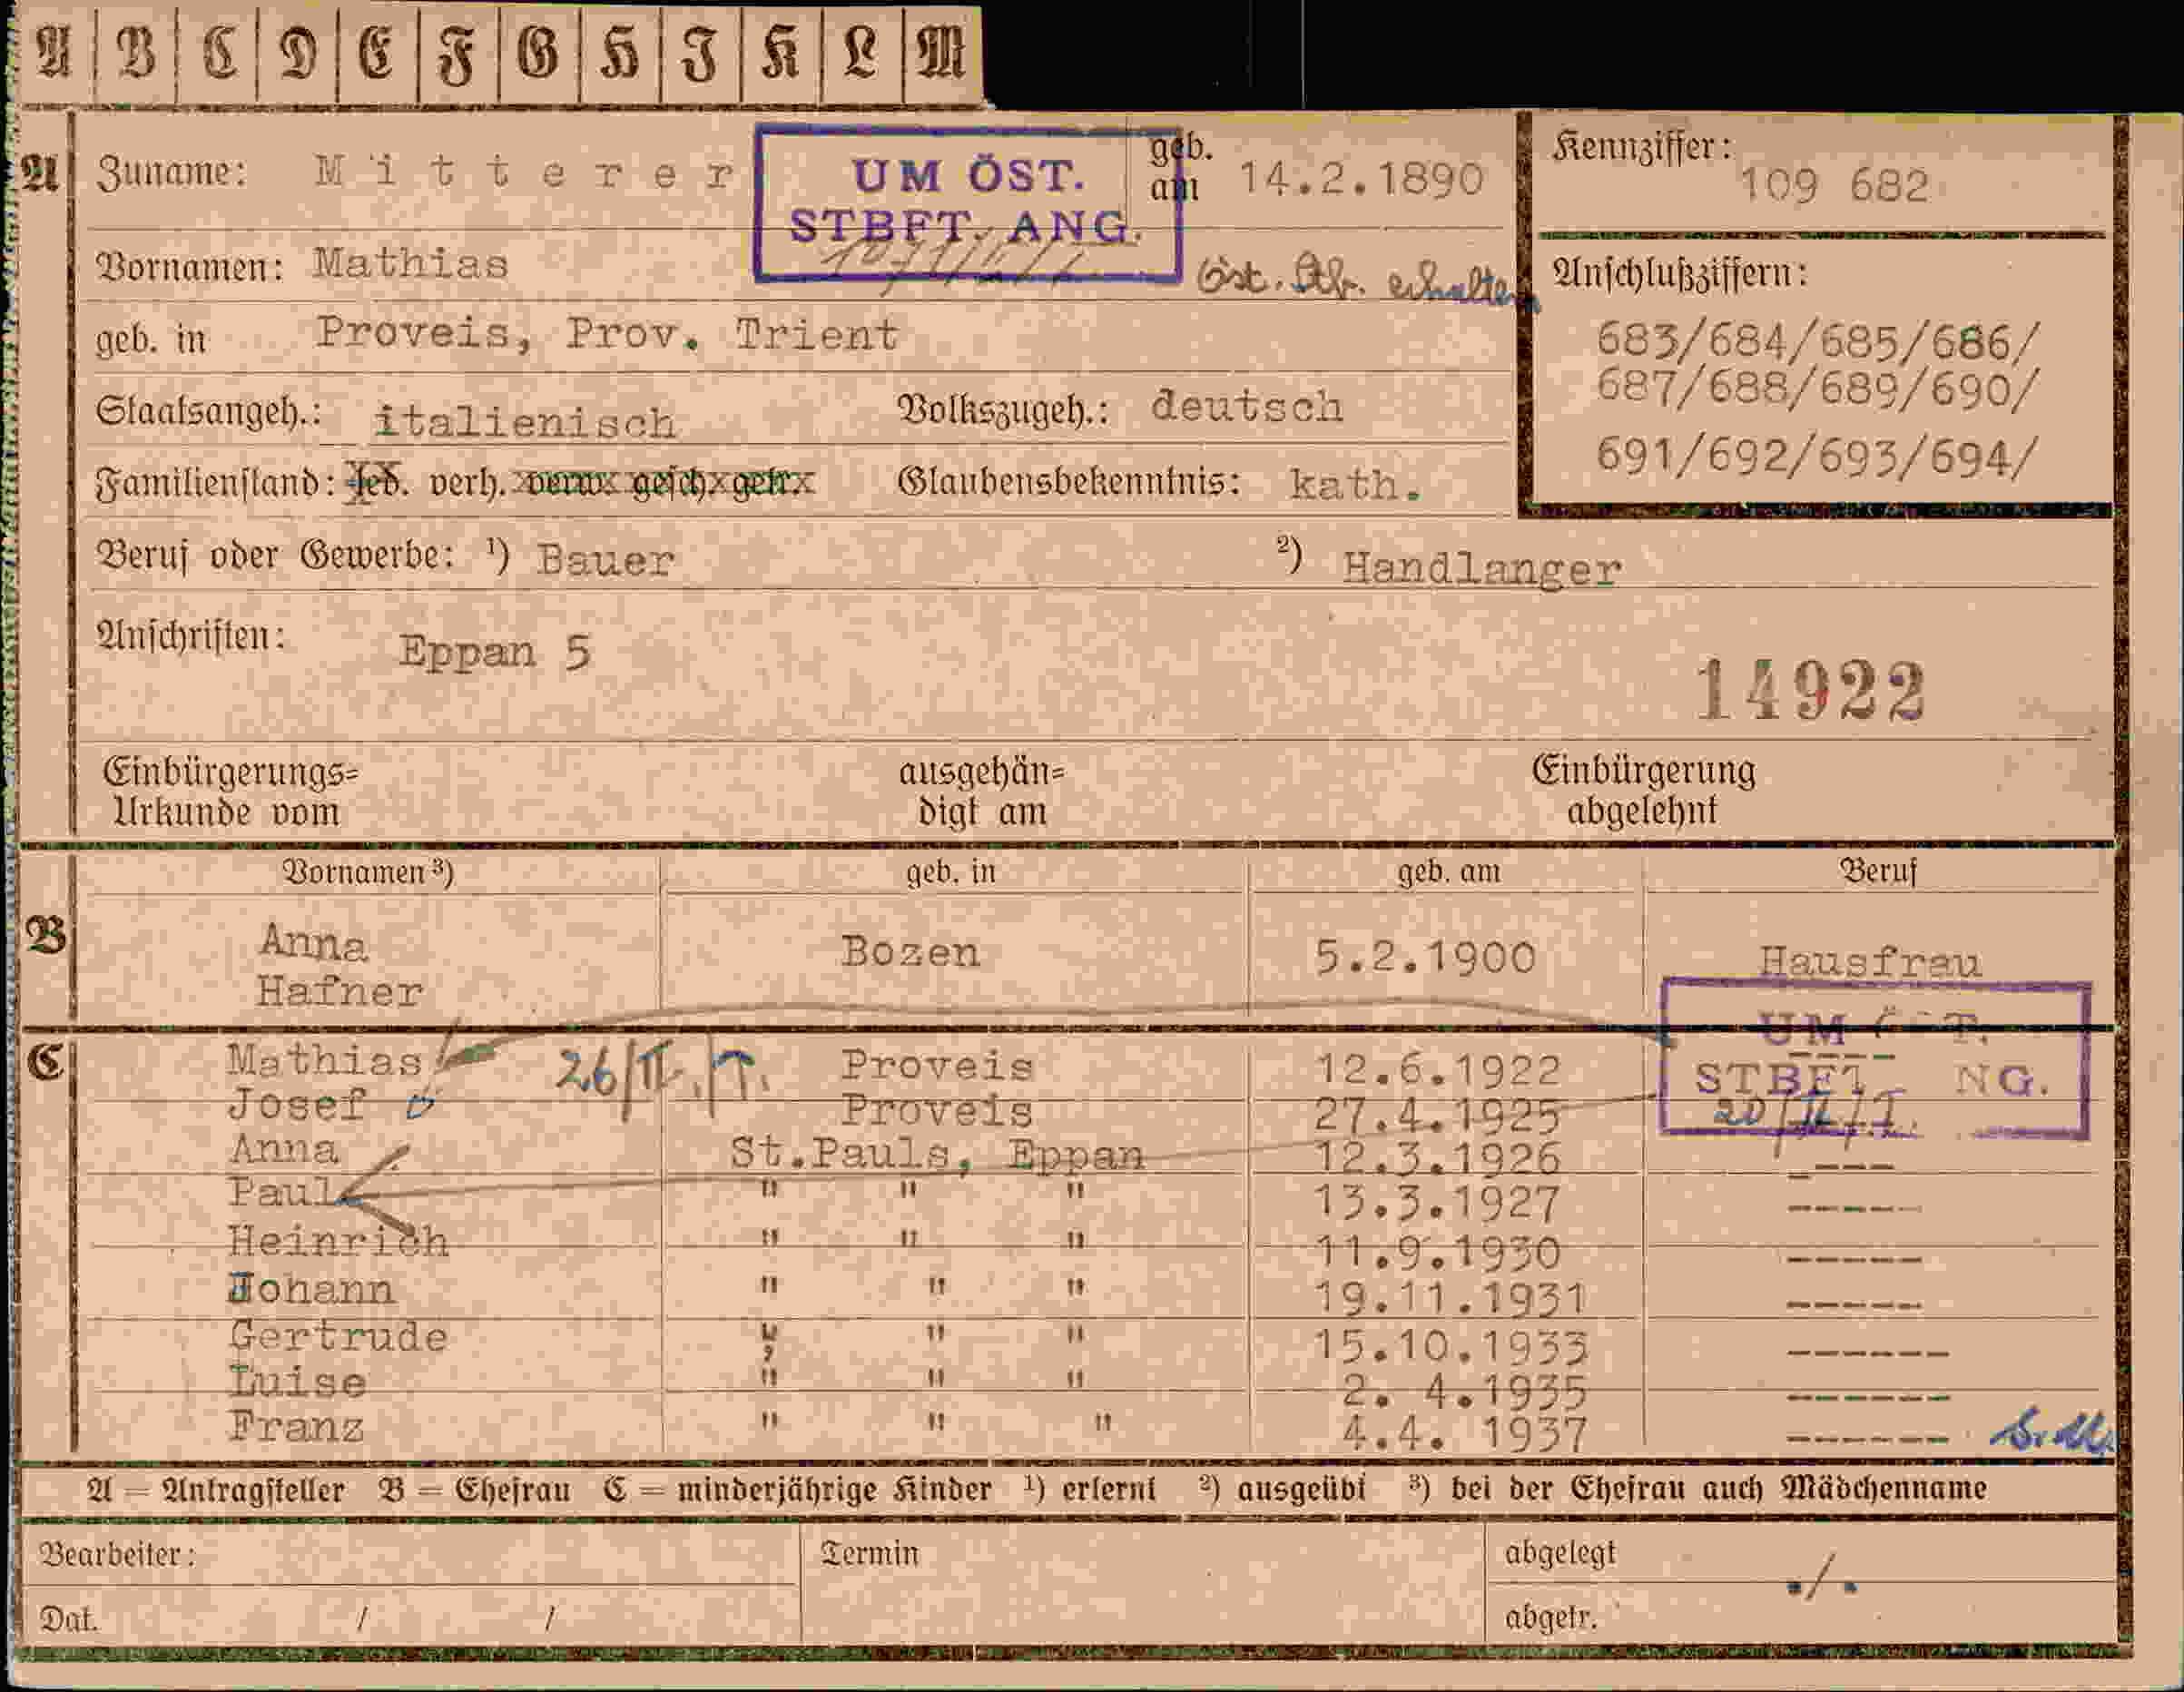 A B C D E F G H I K L M
A Zuname: Mitterer geb. am 14.2.1890 Kennziffer: 109 682
UM ÖST. STBFT. ANG.
Vornamen: Mathias Öst. Stb. erhalten Anschlußziffern:
geb. in Proveis, Prov. Trient 683/684/685/686/
687/688/689/690/
Staatsangeh.: italienisch Volkszugeh.: deutsch
691/692/693/694/
Familienstand: led. verh. verw. gesch. getr. Glaubensbekenntnis: kath.
Beruf oder Gewerbe: ¹) Bauer ²) Handlanger
Anschriften: Eppan 5
14922
Einbürgerungs= ausgehän= Einbürgerung
Urkunde vom digt am abgelehnt
Vornamen ³) geb. in geb. am Beruf
B Anna Bozen 5.2.1900 Hausfrau
Hafner
UM T.
C Mathias 26/II./T. Proveis 12.6.1922 ----
STBFT NG.
Josef ö Proveis 27.4.1925 20/II/T.
Anna St.Pauls, Eppan 12.3.1926 ----
Paul " " " 13.3.1927 -----
Heinrich " " " 11.9.1930 -----
Johann " " " 19.11.1931 -----
Gertrude " " " 15.10.1933 ------
Luise " " " 2. 4.1935 ------
Franz " " " 4.4. 1937 ------
A = Antragsteller B = Ehefrau C = minderjährige Kinder ¹) erlernt ²) ausgeübt ³) bei der Ehefrau auch Mädchenname
Bearbeiter: Termin abgelegt
./.
Dat. / / abgetr.